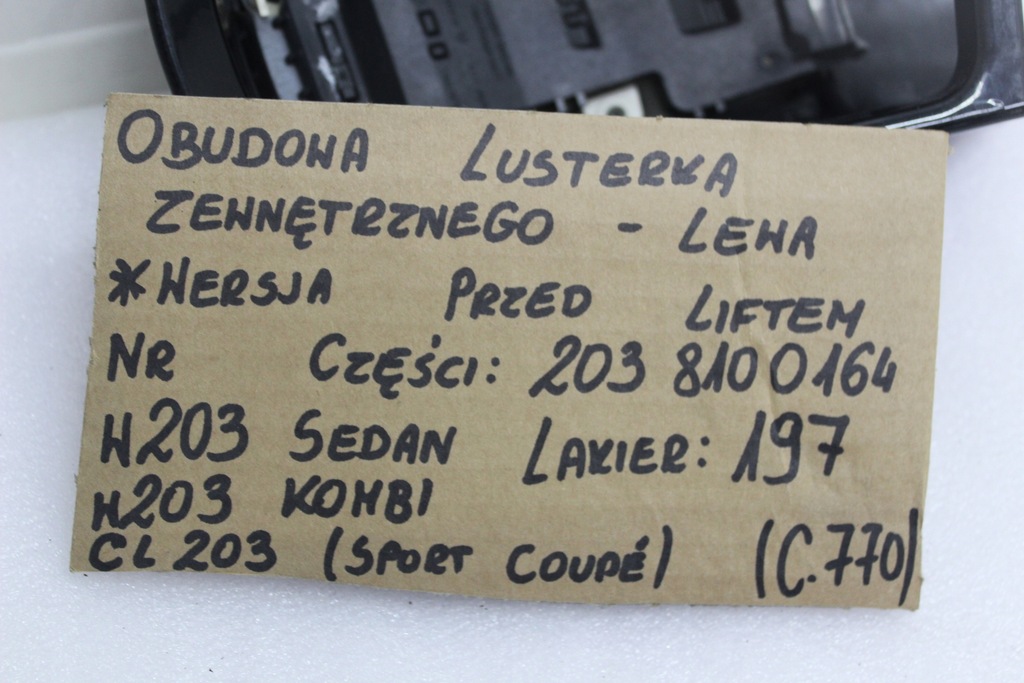 OBUDOWA LUSTERKA
ZEWNĘTRZNEGO - LEWA
*WERSJA PRZED LIFTEM
NR CZĘŚCI: 203 8100164
W203 SEDAN LAKIER: 197
W203 KOMBI
CL203 (SPORT COUPÉ) (C.770)